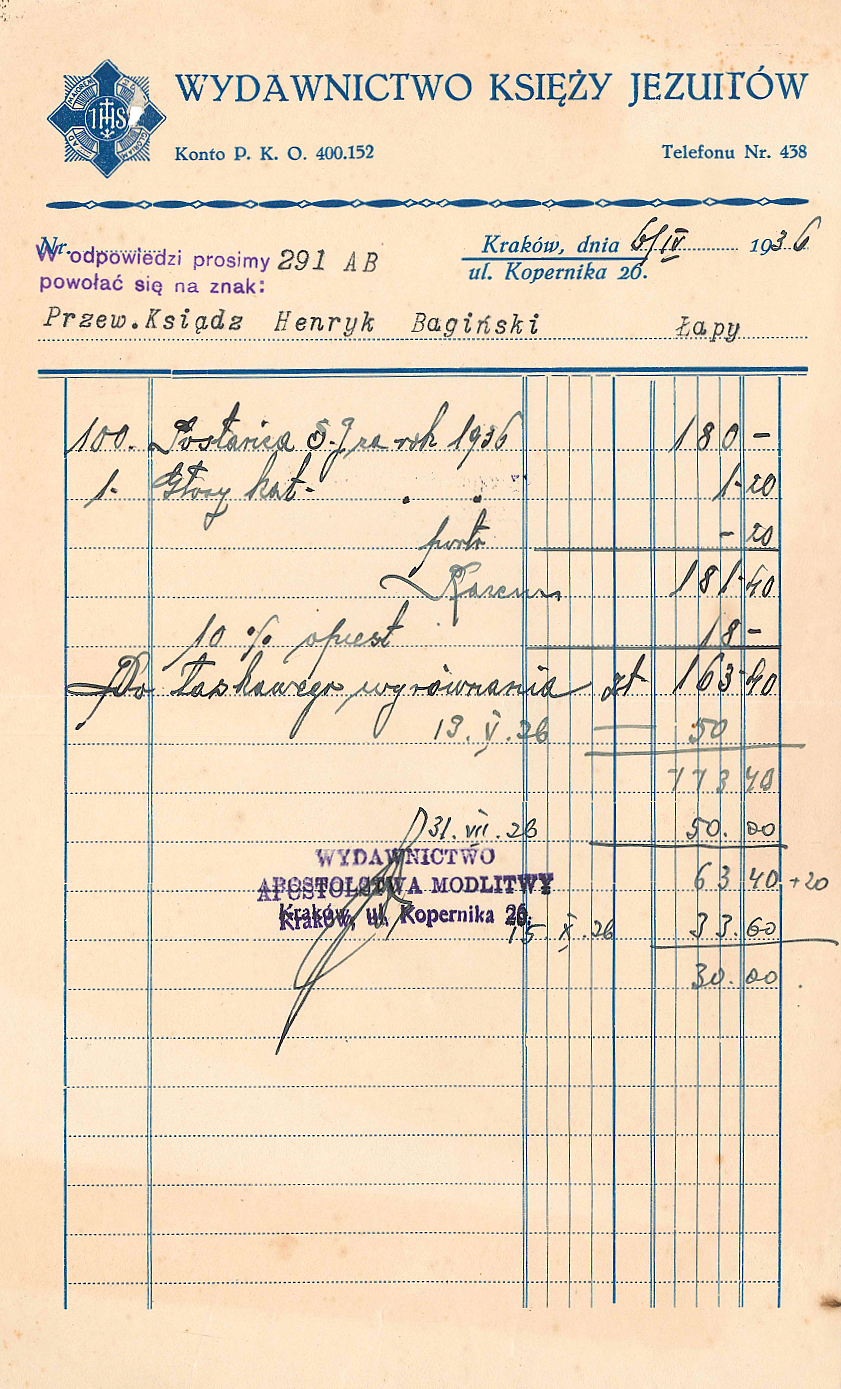 AD MAJOREM DEI GLORIAM
IHS
WYDAWNICTWO KSIĘŻY JEZUITÓW
Konto P. K. O. 400.152 Telefonu Nr. 438
Nr.
W odpowiedzi prosimy 291 AB
powołać się na znak:
Kraków, dnia 6/IV 1936
ul. Kopernika 26.
Przew.Ksiądz Henryk Bagiński Łapy
100. Posłańca S.J za rok 1936 180 -
1. Głosy kat. " " 1.20
porto - 20
Razem 181.40
10 % opust 18 -
Do łaskawego wyrównania zł 163.40
13. V. 36 50
113 40
31. VII. 36 50.00
WYDAWNICTWO
APOSTOLSTWA MODLITWY
Kraków, ul. Kopernika 26.
63 40 +20
15 X. 36 33.60
30.00